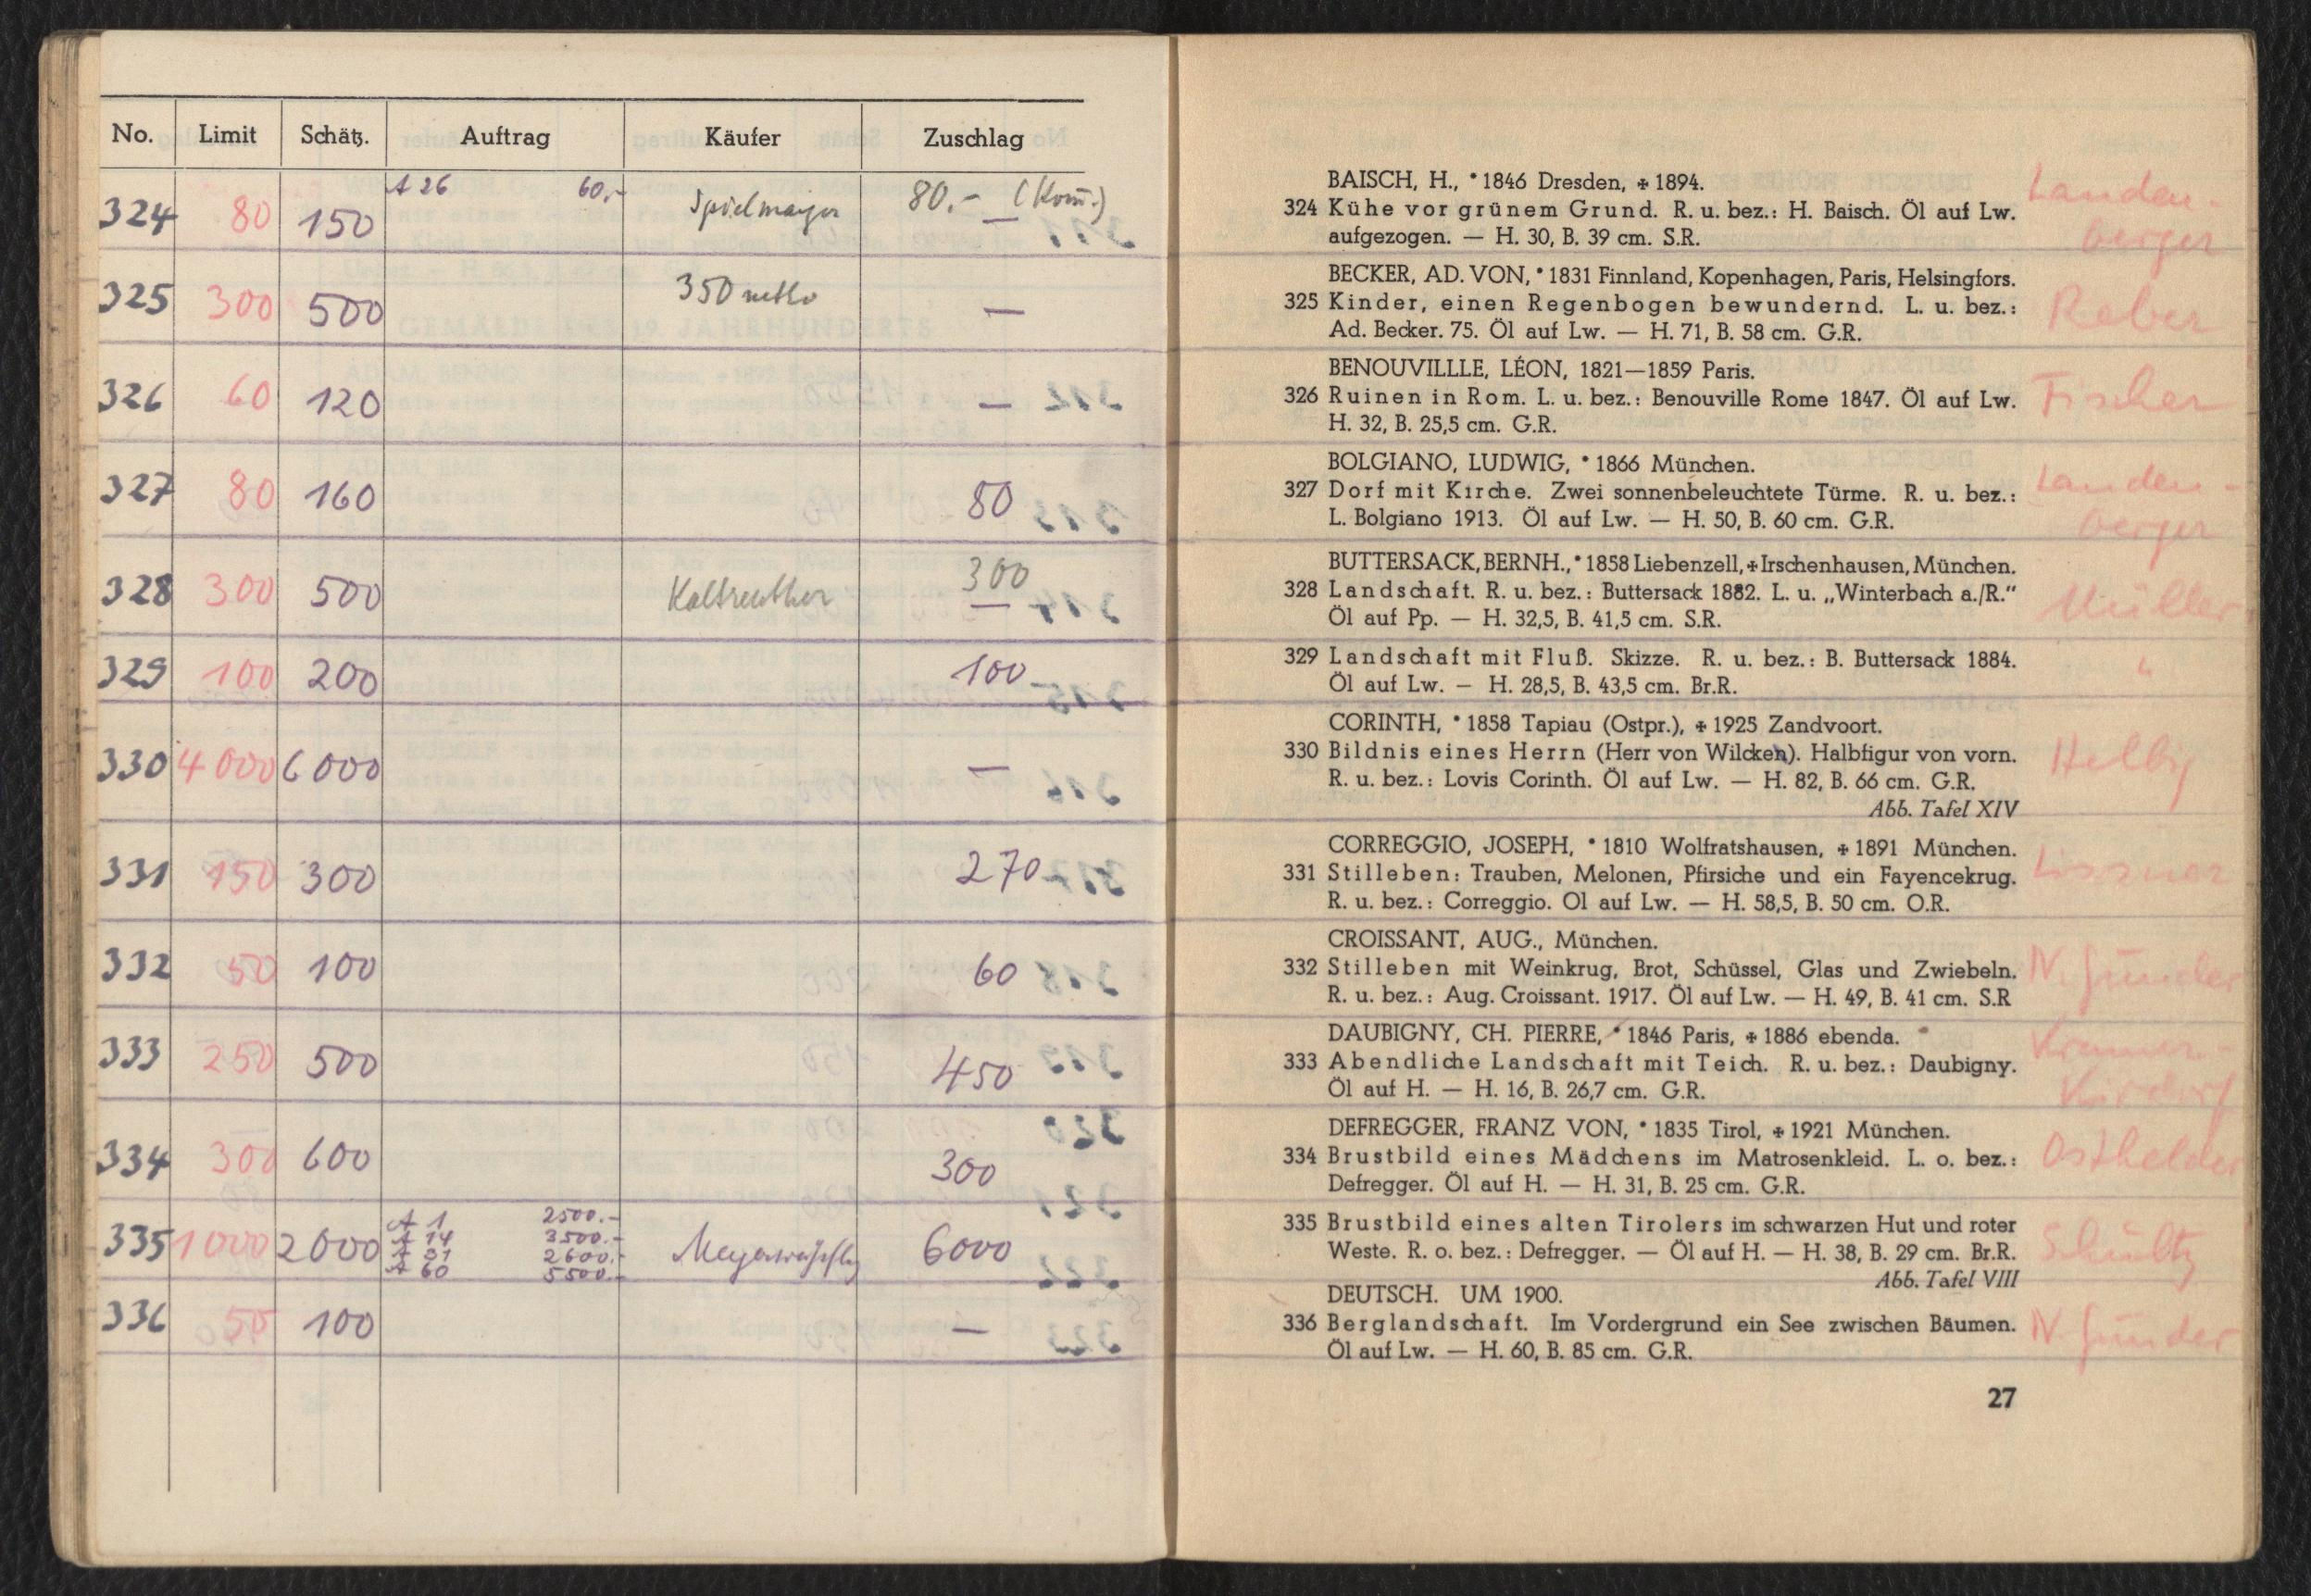 No. Limit Schätz. Auftrag Käufer Zuschlag
324 80 150 A 26 60,- Spielmayer 80.- (Kom.)
325 300 500 350 netto —
326 60 120 —
327 80 160 80
328 300 500 300 —
329 100 200 100
330 4000 6000 —
331 150 300 270
332 50 100 60
333 250 500 450
334 300 600 300
335 1000 2000 6000
A 1 2500.-
A 14 3500.-
A 31 2600.-
A 60 5500.-
336 50 100 —
BAISCH, H., * 1846 Dresden, ✠ 1894.
324 Kühe vor grünem Grund. R. u. bez.: H. Baisch. Öl auf Lw.
aufgezogen. — H. 30, B. 39 cm. S.R.
Landen-
berger
BECKER, AD. VON, * 1831 Finnland, Kopenhagen, Paris, Helsingfors.
325 Kinder, einen Regenbogen bewundernd. L. u. bez.:
Ad. Becker. 75. Öl auf Lw. — H. 71, B. 58 cm. G.R.
Reber
BENOUVILLLE, LÉON, 1821—1859 Paris.
326 Ruinen in Rom. L. u. bez.: Benouville Rome 1847. Öl auf Lw.
H. 32, B. 25,5 cm. G.R.
Fischer
BOLGIANO, LUDWIG, * 1866 München.
327 Dorf mit Kirche. Zwei sonnenbeleuchtete Türme. R. u. bez.:
L. Bolgiano 1913. Öl auf Lw. — H. 50, B. 60 cm. G.R.
Landen-
berger
BUTTERSACK, BERNH., * 1858 Liebenzell, ✠ Irschenhausen, München.
328 Landschaft. R. u. bez.: Buttersack 1882. L. u. „Winterbach a./R.“
Öl auf Pp. — H. 32,5, B. 41,5 cm. S.R.
Müller
329 Landschaft mit Fluß. Skizze. R. u. bez.: B. Buttersack 1884.
Öl auf Lw. — H. 28,5, B. 43,5 cm. Br.R.
"
CORINTH, * 1858 Tapiau (Ostpr.), ✠ 1925 Zandvoort.
330 Bildnis eines Herrn (Herr von Wilcken). Halbfigur von vorn.
R. u. bez.: Lovis Corinth. Öl auf Lw. — H. 82, B. 66 cm. G.R.
Abb. Tafel XIV
Helbig
CORREGGIO, JOSEPH, * 1810 Wolfratshausen, ✠ 1891 München.
331 Stilleben: Trauben, Melonen, Pfirsiche und ein Fayencekrug.
R. u. bez.: Correggio. Ol auf Lw. — H. 58,5, B. 50 cm. O.R.
CROISSANT, AUG., München.
332 Stilleben mit Weinkrug, Brot, Schüssel, Glas und Zwiebeln.
R. u. bez.: Aug. Croissant. 1917. Öl auf Lw. — H. 49, B. 41 cm. S.R
N. Günder
DAUBIGNY, CH. PIERRE, * 1846 Paris, ✠ 1886 ebenda.
333 Abendliche Landschaft mit Teich. R. u. bez.: Daubigny.
Öl auf H. — H. 16, B. 26,7 cm. G.R.
DEFREGGER, FRANZ VON, * 1835 Tirol, ✠ 1921 München.
334 Brustbild eines Mädchens im Matrosenkleid. L. o. bez.:
Defregger. Öl auf H. — H. 31, B. 25 cm. G.R.
Osthelder
335 Brustbild eines alten Tirolers im schwarzen Hut und roter
Weste. R. o. bez.: Defregger. — Öl auf H. — H. 38, B. 29 cm. Br.R.
Abb. Tafel VIII
Schultz
DEUTSCH. UM 1900.
336 Berglandschaft. Im Vordergrund ein See zwischen Bäumen.
Öl auf Lw. — H. 60, B. 85 cm. G.R.
N. Günder
27